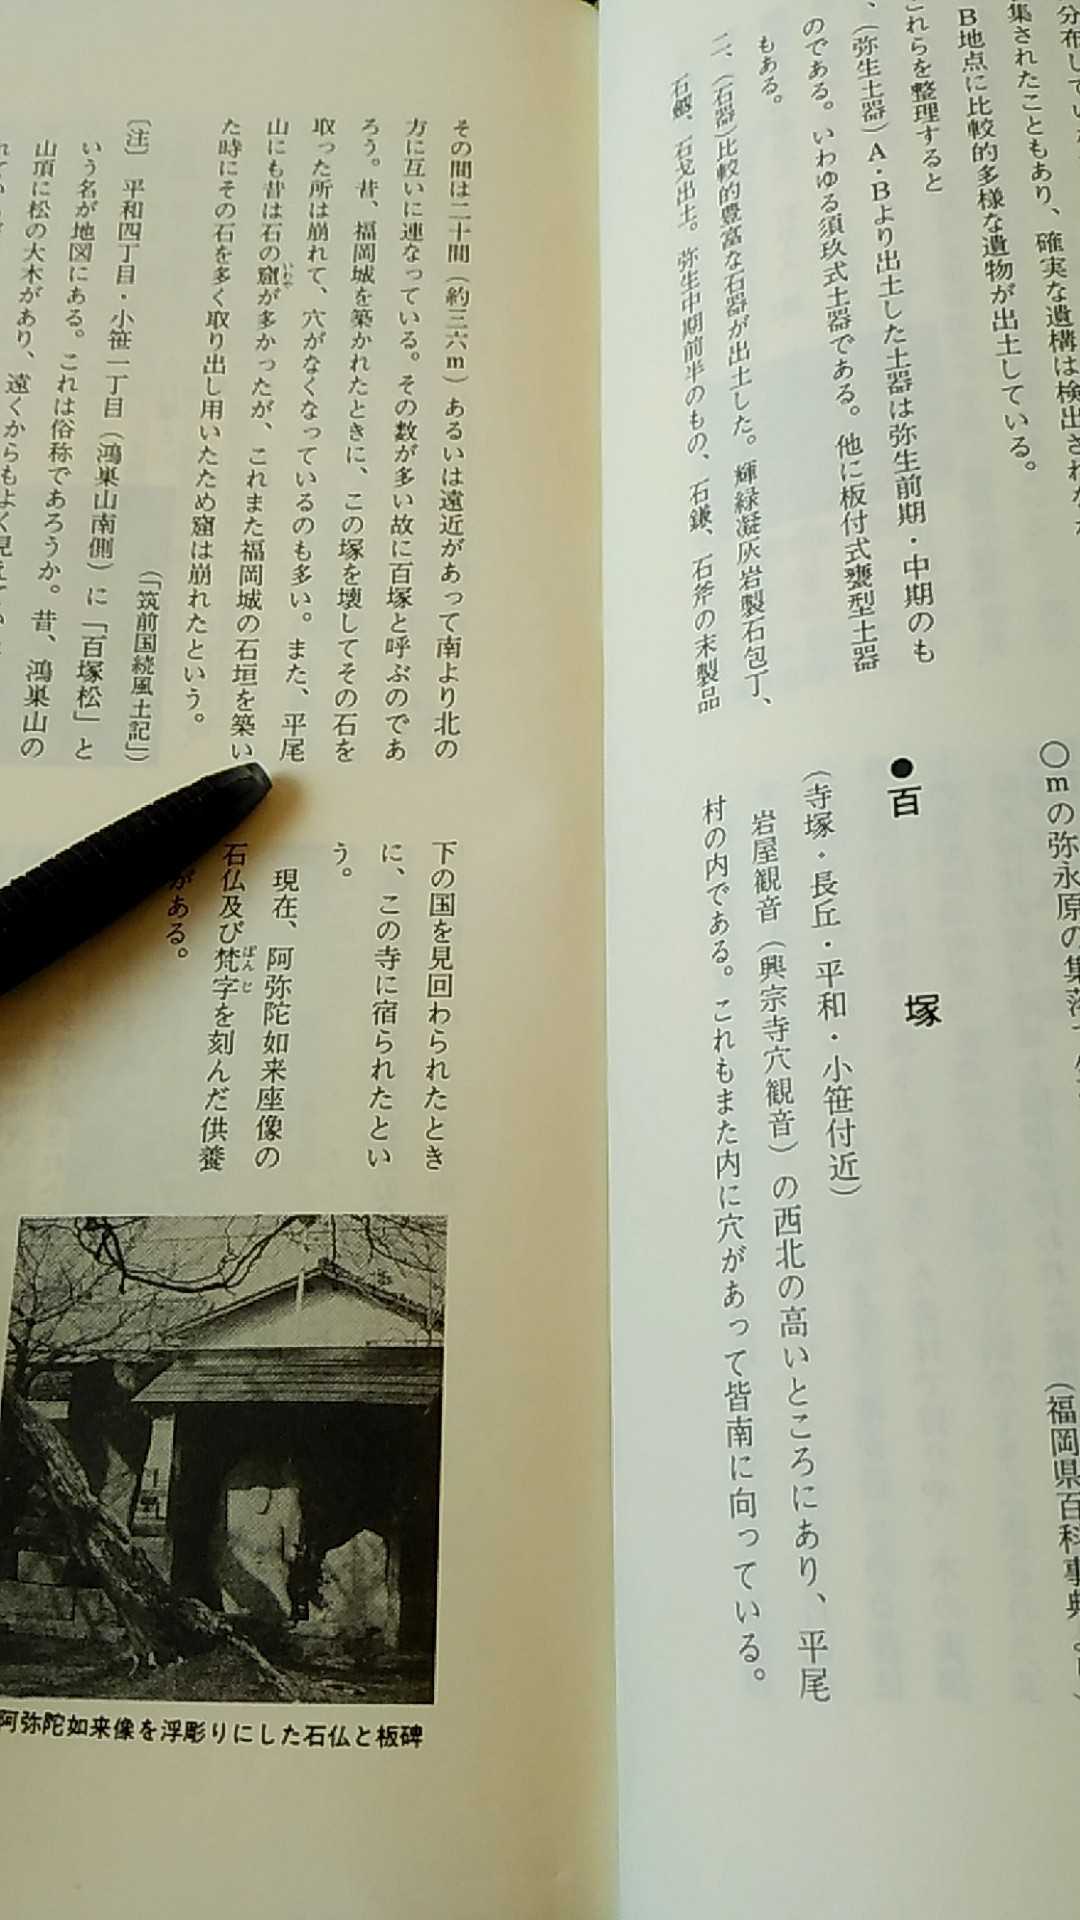 分布してい
集されたこともあり、確実な遺構は検出され
B地点に比較的多様な遺物が出土している。
これらを整理すると
、(弥生土器)A・Bより出土した土器は弥生前期・中期のも
のである。いわゆる須玖式土器である。他に板付式甕型土器
もある。
二、(石器)比較的豊富な石器が出土した。輝緑凝灰岩製石包丁、
石戈出土。弥生中期前半のもの、石鎌、石斧の末製品
〇mの弥永原の集落
(福岡県百科事典
●百塚
(寺塚・長丘・平和・小笹付近)
岩屋観音(興宗寺穴観音)の西北の高いところにあり、平尾
村の内である。これもまた内に穴があって皆南に向っている。
その間は二十間(約三六m)あるいは遠近があって南より北の
方に互いに連なっている。その数が多い故に百塚と呼ぶのであ
ろう。昔、福岡城を築かれたときに、この塚を壊してその石を
取った所は崩れて、穴がなくなっているのも多い。また、平尾
山にも昔は石の窟が多かったが、これまた福岡城の石垣を築い
いわや
た時にその石を多く取り出し用いたため窟は崩れたという。
(「筑前国続風土記」)
〔注〕 平和四丁目・小笹一丁目(鴻巣山南側)に「百塚松」と
いう名が地図にある。これは俗称であろうか。昔、鴻巣山の
山頂に松の大木があり、遠くからもよく見えてい
下の国を見回わられたとき
に、この寺に宿られたとい
う。
現在、阿弥陀如来座像の
石仏及び梵字を刻んだ供養
ぼんじ
がある。
阿弥陀如来像を浮彫りにした石仏と板碑